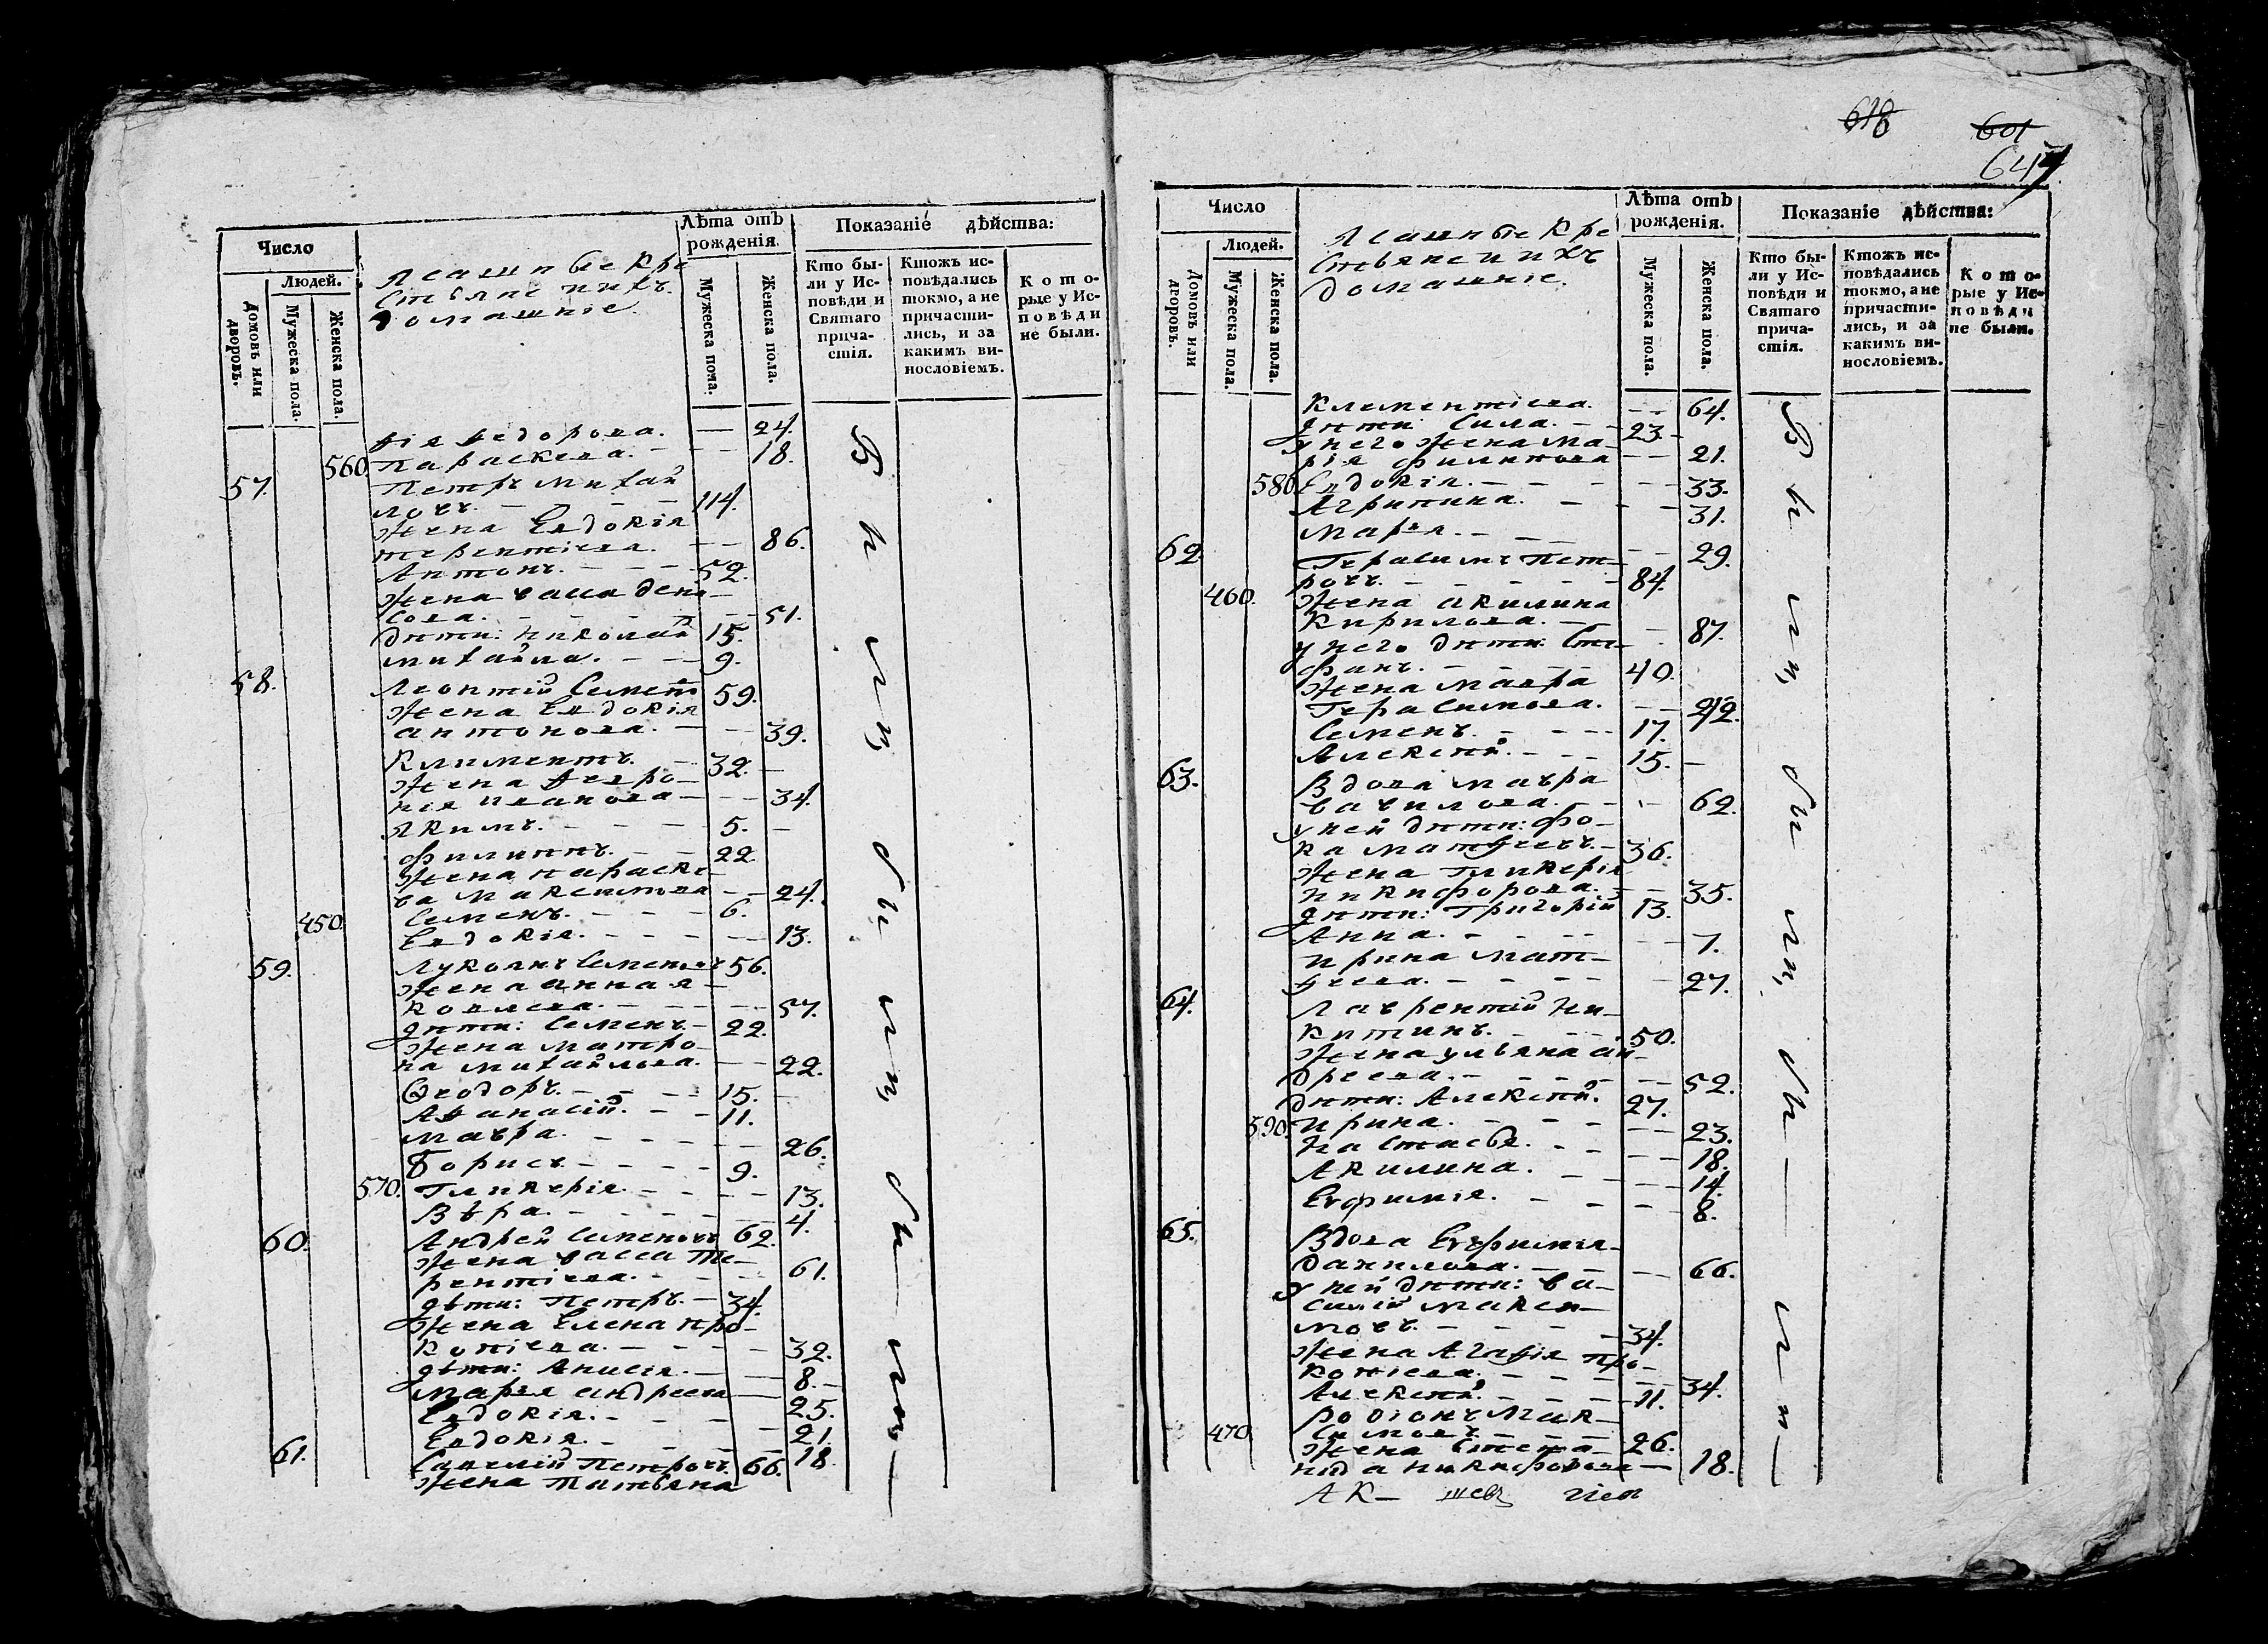 Число
Людей.
Домовъ или дворовъ.
Мужеска пола.
Женска пола.
Ясашные кре
стьяне и ихъ
домашніе.
Лѣта отъ рожденія.
Мужеска пола.
Женска пола.
Показаніе дѣйства:
Кто бы-
ли у Ис-
повѣди и
Святаго
прича-
стія.
Ктожъ ис-
повѣдались
токмо, а не
причасти-
лись, и за
какимъ ви-
нословіемъ.
Кото-
рые у Ис-
повѣди
не были.
ѳія ѳедорова. — 24.
560. Параскева. — — 18.
57. Петръ михай
ловъ. — — 114.
жена Евдокія
терентіева. — — 86.
Антонъ. — — — 52.
жена васса дени-
сова. — — 51.
дѣти: Николай 15.
михайла. — — 9.
58. Леонтій Семен 59.
жена Евдокія
антонова. — — 39.
Климентъ. — 32. —
жена ѳевро-
нія иванова — — 34.
Якимъ. — — — 5. —
филиппъ. — — 22.
жена параске-
ва максимова — — 24.
450. Семенъ. — — — 6.
Евдокія. — — — — 13.
59. Лукоянъ Семеновъ 56.
жена анна я-
ковлева. — — — 57.
дѣти: Семенъ. — 22.
жена матро-
на михайлова. — — 22.
Ѳеодоръ. — — — 15. —
Аѳанасій. — — 11.
мавра. — — — — 26.
Борисъ — — — — 9.
570. Гликерія. — — — — 13.
Вѣра. — — — — 4.
60. Андрей Семеновъ 62.
жена васса Те-
рентіева. — — — 61.
дѣти: Петръ. — 34.
жена Елена про-
копіева. — — — — 32.
дѣти: Анисія. — — 8. —
марья андреева — 25.
Евдокія. — — — — 21.
Евдокія. — — — — 18.
61. Савелій Петровъ. 66.
жена Татьяна
Б ы л и, б ы л и, б ы — ли, —
618 601
647.
Число
Людей.
Домовъ или дворовъ.
Мужеска пола.
Женска пола.
Ясашные кре
стьяне и ихъ
домашніе.
Лѣта отъ рожденія.
Мужеска пола.
Женска пола.
Показаніе дѣйства:
Кто бы-
ли у Ис-
повѣди и
Святаго
прича-
стія.
Ктожъ ис-
повѣдались
токмо, а не
причасти-
лись, и за
какимъ ви-
нословіемъ.
Кото-
рые у Ис-
повѣди
не были.
Климентіева. — — 64.
дѣти Сила. — — 23. —
у него жена ма-
рія филипова — — 21.
580. Евдокія. — — — — 33.
Агрипина. — — — 31.
марья. — — — — 29.
62. Герасимъ Пет-
ровъ. — — — — 84.
460. жена акилина
Кирилова. — — 87.
у него дѣти: Сте-
фанъ. — — — — 40.
жена мавра
Герасимова. — — 42.
Семенъ. — — — 17.
Алексѣй. — — — 15. —
63. Вдова мавра
вавилова. — — — 62.
у ней дѣти: фо-
ка матѳеевъ. — 36.
жена Гликерія
никифорова. — — 35.
дѣти: Григорій 13.
Анна. — — — — 7.
ирина мат-
ѳеева. — — — — 27.
64. Лаврентій Ни-
китинъ. — — — 50.
жена ульяна ан-
дреева. — — — — 52.
дѣти: Алексѣй. 27.
590. ирина. — — — — 23.
Настасья. — — — 18.
Акилина. — — — 14.
Евфимія. — — — 8.
65. Вдова Евфимія
данилова. — — — 66.
у ней дѣти: ва-
силій макси-
мовъ. — — — — 34.
жена Агафія Про-
копіева. — — — — 34.
Алексѣй. — — — 11.
470. родіонъ мак-
симовъ. — — — 26.
жена Степа-
нида никифорова — 18.
Б ы л и, б ы л и, б ы — ли —